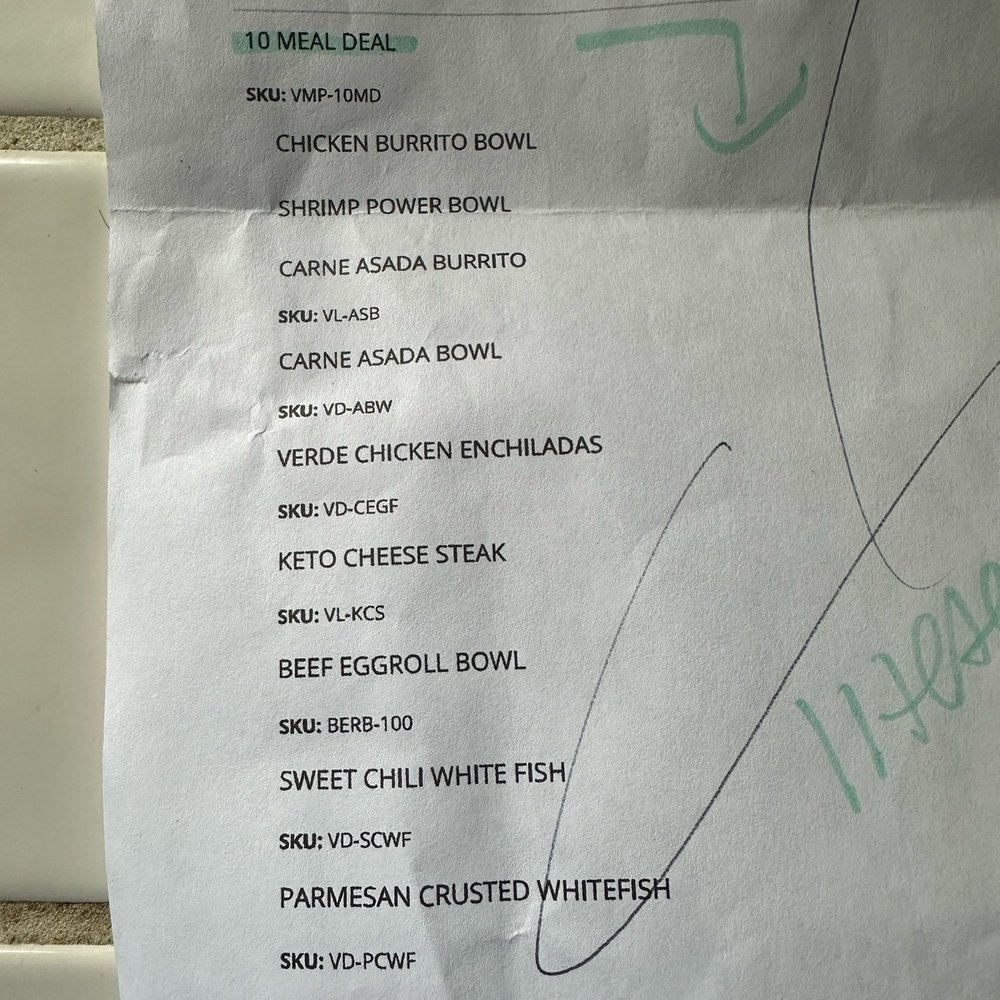 10 MEAL DEAL
SKU: VMP-10MD
CHICKEN BURRITO BOWL
SHRIMP POWER BOWL
CARNE ASADA BURRITO
SKU: VL-ASB
CARNE ASADA BOWL
SKU: VD-ABW
VERDE CHICKEN ENCHILADAS
SKU: VD-CEGF
KETO CHEESE STEAK
SKU: VL-KCS
BEEF EGGROLL BOWL
SKU: BERB-100
SWEET CHILI WHITE FISH
SKU: VD-SCWF
PARMESAN CRUSTED WHITEFISH
SKU: VD-PCWF